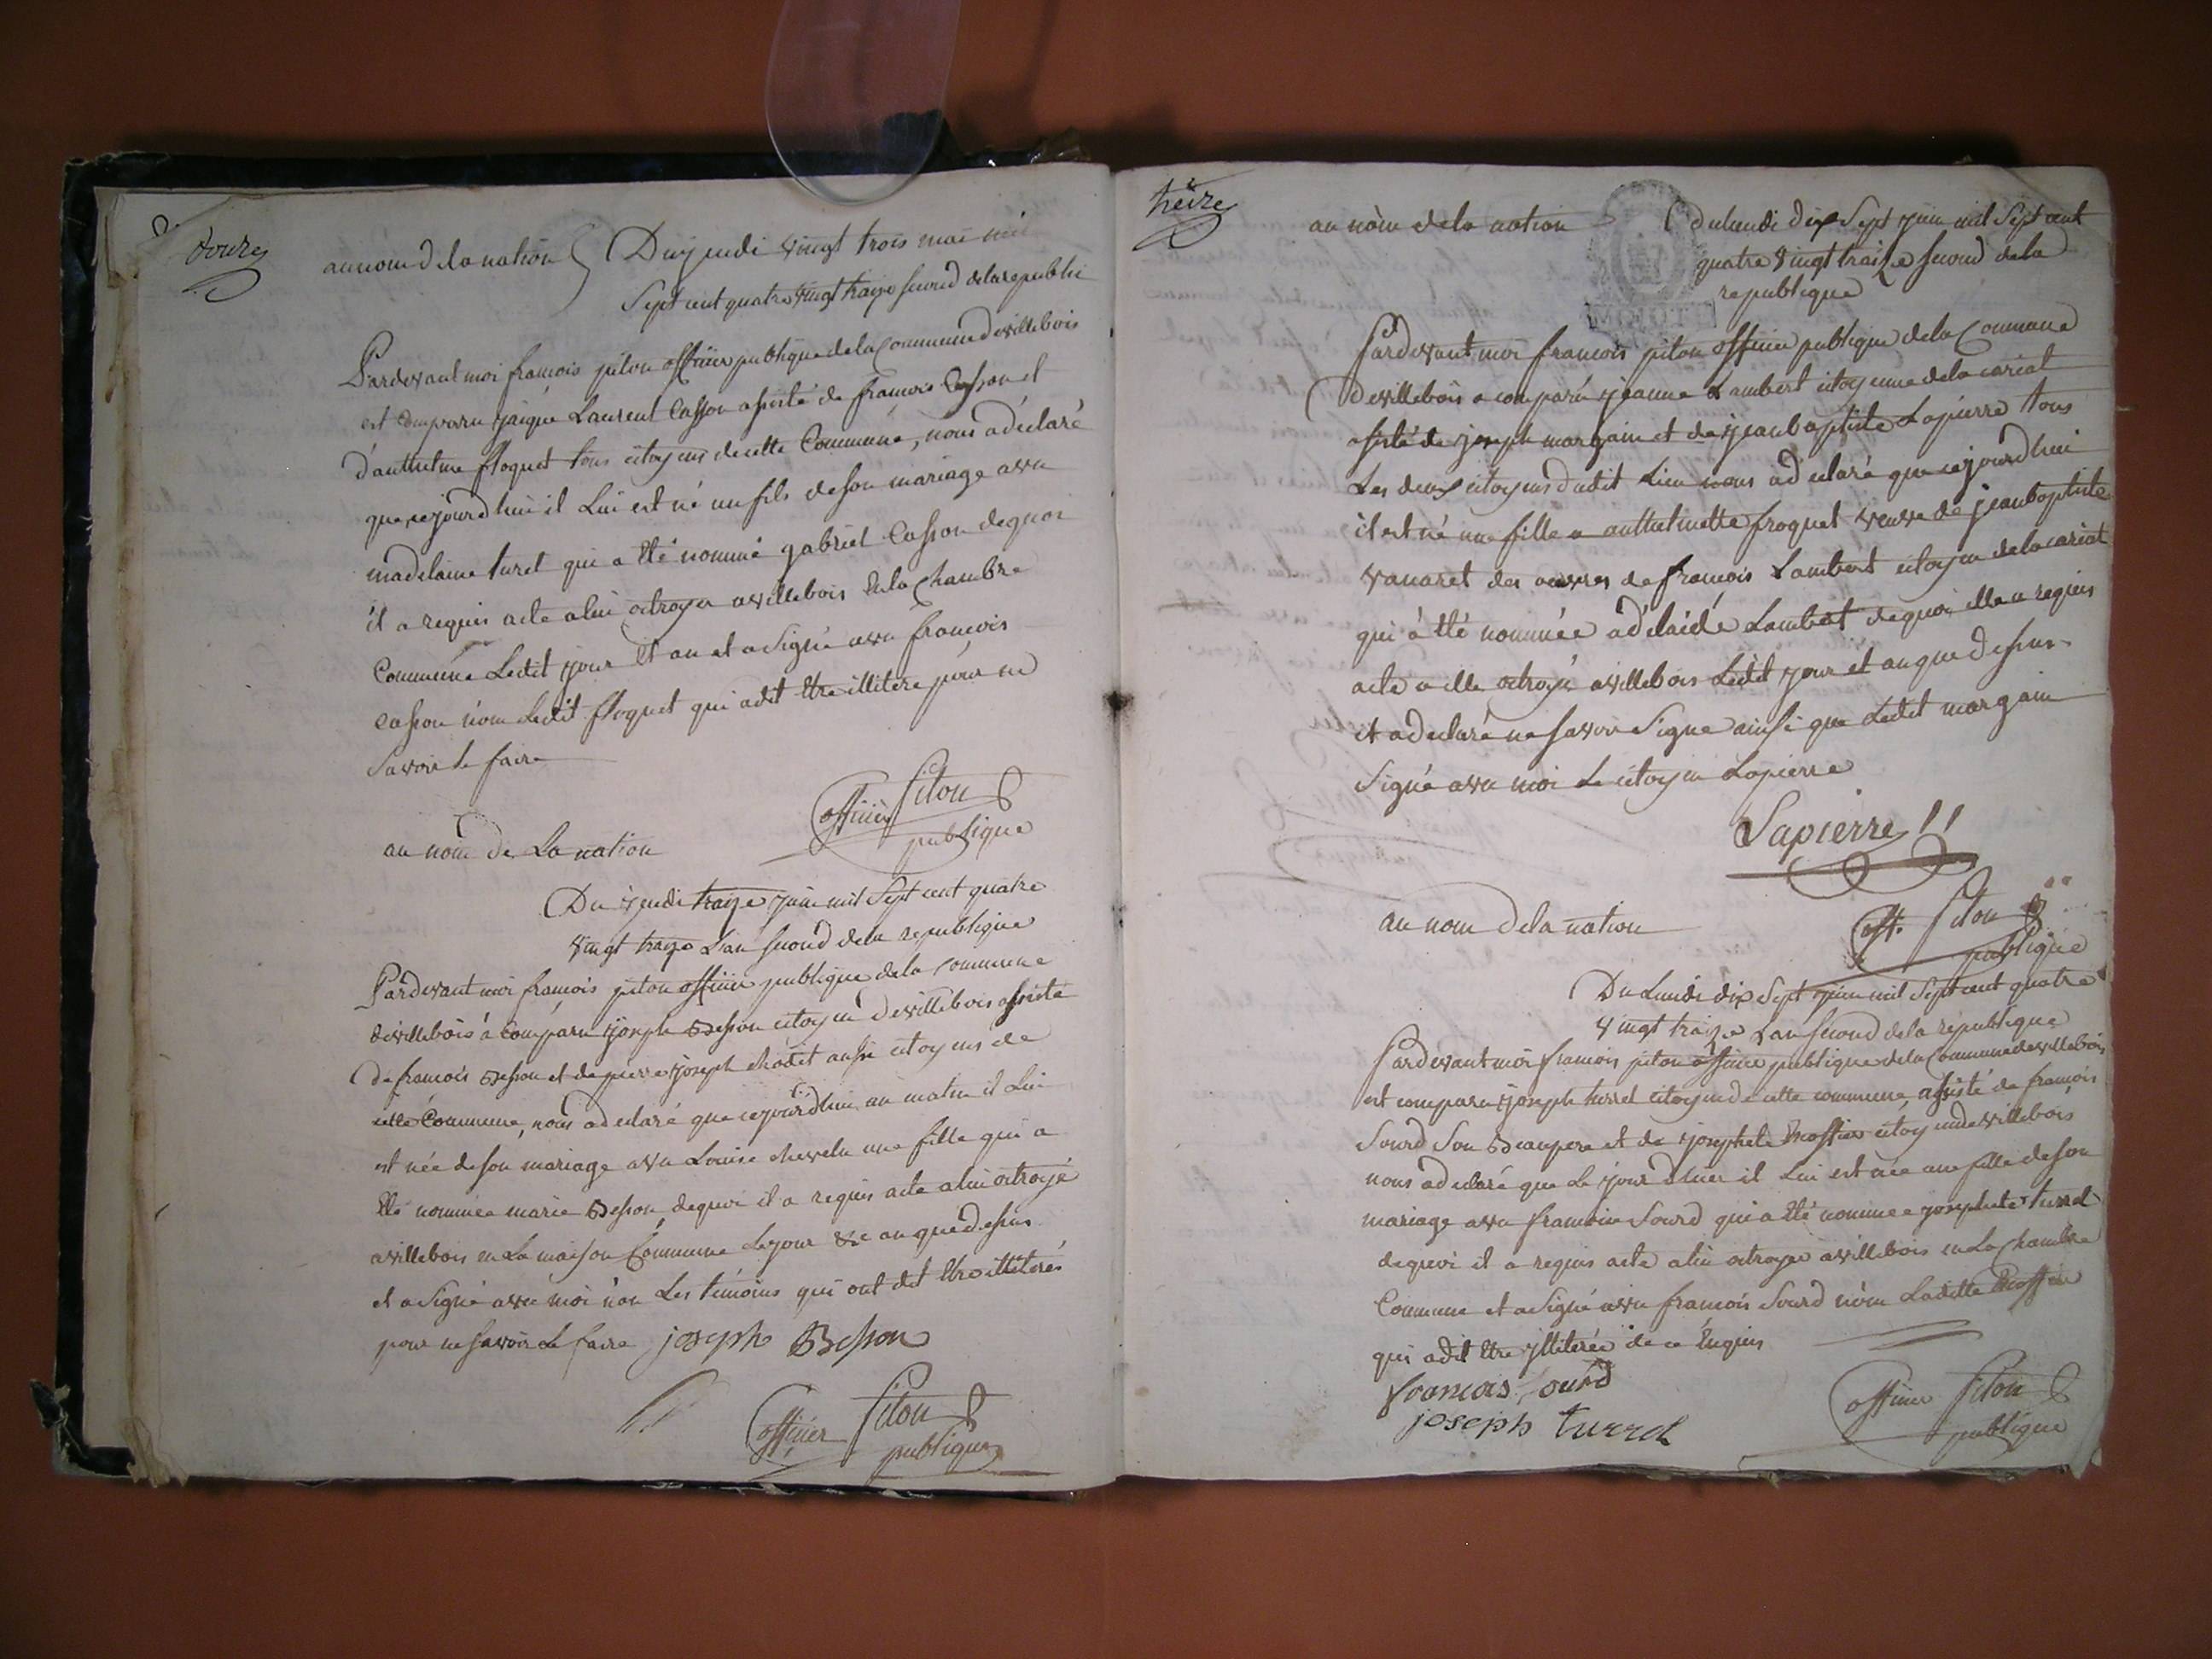 douze
au nom de la nation Du jeudi vingt trois mai mil
Sept cent quatre vingt traize second de la republi
Pardevant moi francois piton officier publique de la Commune de villebois
est comparu jaique Laurent Casson assisté de francois Casson et
d'anthelme floquet tous citoyens de cette Commune, nous a déclaré
que cejourd'huÿ il Lui est né un fils de son mariage avec
madelaine turel qui a été nommé gabriel Casson de quoi
il a requis acte a lui octroyer a villebois en la Chambre
Commune Ledit jour et an et a Signé avec francois
casson non Ledit floquet qui a dit etre illitere pour ne
Savoir le faire
Piton
officier
publique
au nom de La nation
Du jeudi traize juin mil Sept cent quatre
vingt traize L'an second de la republique
Pardevant moi francois piton officier publique de la commune
de villebois a Comparu joseph Besson citoyen de villebois assisté
de francois Besson et de pierre joseph chodit aussi citoyens de
cette Commune, nous a déclaré que cejourd'hui au matin il Lui
est née de son mariage avec Louise chevelu une fille qui a
été nommée marie Besson, de quoi il a requis acte a lui octroyé
a villebois en La maison Commune Le jour et an que dessus
et a Signé avec moi non Les témoins qui ont dit etre illiterés
pour ne savoir Le faire joseph Besson
Piton
officier
publique
treize
au nom de la nation du lundi dix Sept juin mil Sept cent
quatre vingt traize second de la
republique
Pardevant moi francois piton officier publique de la Commune
de villebois a comparu jeanne Lambert citoyenne de la cariat
assisté de joseph margain et de jean baptiste Lapierre tous
Les deux citoyens dudit Lieu nous a déclaré que cejourd'hui
il est né une fille a anthelmette froquet veuve de jean baptiste
vanaret des œuvres de francois Lambert citoyen de la cariat
qui a été nommée adélaide Lambert de quoi elle a requis
acte a elle octroyé a villebois Ledit jour et an que dessus
et a declaré ne savoir Signe ainsi que Ledit margain
Signé avec moi Le citoyen Lapierre
Lapierre
au nom de la nation
off. Piton
publique
Du Lundi dix Sept juin mil Sept cent quatre
vingt traize L'an second de la republique
Pardevant moi francois piton officier publique de la Commune de villebois
est comparu joseph turrel citoyen de cette commune, assisté de francois
Sourd Son Beaupere et de josephete citoyenne de villebois
nous a declaré que Le jour d'hier il Lui est née une fille de son
mariage avec francoise Sourd qui a été nommée josephete turrel
de quoi il a requis acte a lui octroyer a villebois en La Chambre
Commune et a Signé avec francois Sourd non Laditte
qui a dit etre illiterée de ce Enquis
francois sourd
joseph turrel
officier Piton
publique